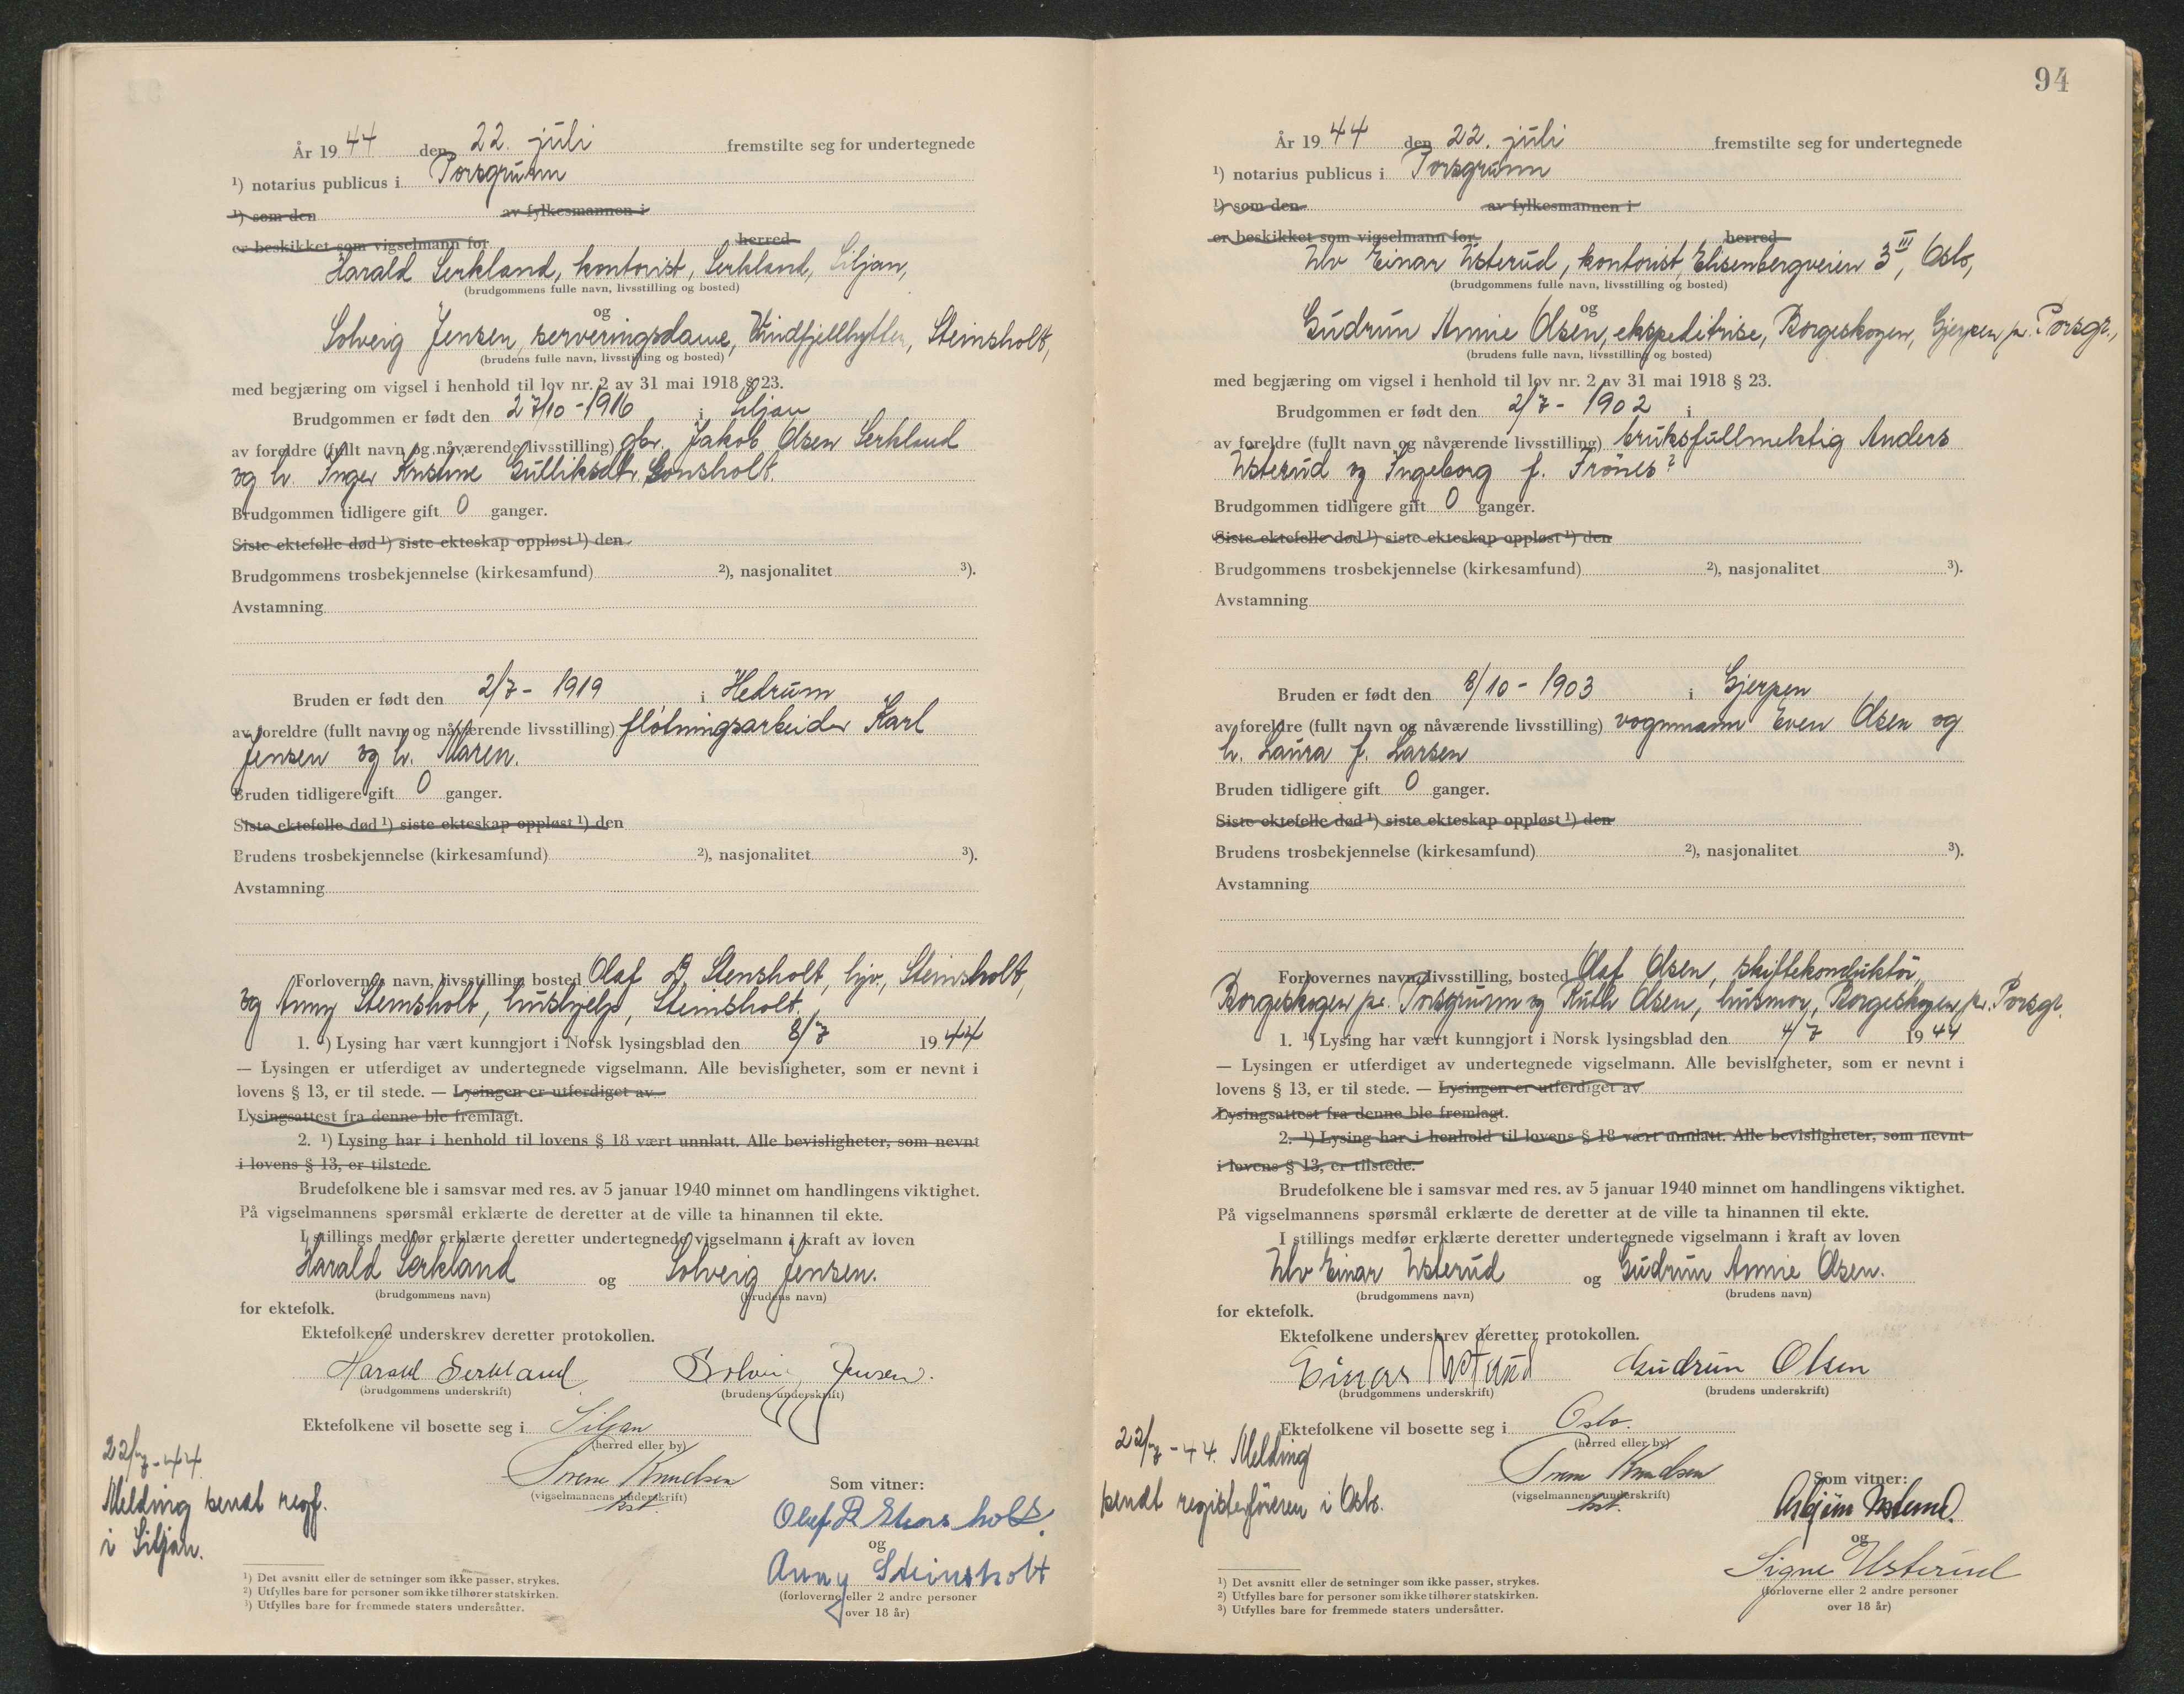 År 19 44 den 22. juli fremstilte seg for undertegnede
¹) notarius publicus i Porsgrunn
¹) som den av fylkesmannen i
er beskikket som vigselmann for herred
Harald Serkland, kontorist, Serkland, Siljan,
(brudgommens fulle navn, livsstilling og bosted)
og
Solveig Jensen, serveringsdame, Vindfjellhytten, Steinsholt,
(brudens fulle navn, livsstilling og bosted)
med begjæring om vigsel i henhold til lov nr. 2 av 31 mai 1918 § 23.
Brudgommen er født den 27/10 - 1916 i Siljan
av foreldre (fullt navn og nåværende livsstilling) gbr. Jakob Olsen Serkland
og h. Inger Kristine Gulliksdtr. Gonsholt.
Brudgommen tidligere gift 0 ganger.
Siste ektefelle død ¹) siste ekteskap oppløst ¹) den
Brudgommens trosbekjennelse (kirkesamfund) ²), nasjonalitet ³).
Avstamning
Bruden er født den 2/7 - 1919 i Hedrum
av foreldre (fullt navn og nåværende livsstilling) fløtningsarbeider Karl
Jensen og h. Maren.
Bruden tidligere gift 0 ganger.
Siste ektefelle død ¹) siste ekteskap oppløst ¹) den
Brudens trosbekjennelse (kirkesamfund) ²), nasjonalitet ³).
Avstamning
Forlovernes navn, livsstilling, bosted Olaf D. Stensholt, hjv., Steinsholt,
og Anny Steinsholt, hushjelp, Steinsholt.
1. ¹) Lysing har vært kunngjort i Norsk lysingsblad den 8/7 19 44
— Lysingen er utferdiget av undertegnede vigselmann. Alle bevisligheter, som er nevnt i
lovens § 13, er til stede. — Lysingen er utferdiget av
Lysingsattest fra denne ble fremlagt.
2. ¹) Lysing har i henhold til lovens § 18 vært unnlatt. Alle bevisligheter, som nevnt
i lovens § 13, er tilstede.
Brudefolkene ble i samsvar med res. av 5 januar 1940 minnet om handlingens viktighet.
På vigselmannens spørsmål erklærte de deretter at de ville ta hinannen til ekte.
I stillings medfør erklærte deretter undertegnede vigselmann i kraft av loven
Harald Serkland og Solveig Jensen.
(brudgommens navn) (brudens navn)
for ektefolk.
Ektefolkene underskrev deretter protokollen.
Harald Serkland Solveig Jensen.
(brudgommens underskrift) (brudens underskrift)
Ektefolkene vil bosette seg i Siljan
(herred eller by)
Knudsen
(vigselmannens underskrift)
kst.
22/7-44.
Melding sendt regf.
i Siljan.
Som vitner:
Olaf D Stensholt.
og
Anny Steinsholt
(forloverne eller 2 andre personer
over 18 år)
¹) Det avsnitt eller de setninger som ikke passer, strykes.
²) Utfylles bare for personer som ikke tilhører statskirken.
³) Utfylles bare for fremmede staters undersåtter.
94
År 19 44 den 22. juli fremstilte seg for undertegnede
¹) notarius publicus i Porsgrunn
¹) som den av fylkesmannen i
er beskikket som vigselmann for herred
Ulv Einar Usterud, kontorist, Elisenbergveien 3 III, Oslo,
(brudgommens fulle navn, livsstilling og bosted)
og
Gudrun Annie Olsen, ekspeditrise, Borgeskogen, Gjerpen pr. Porsgr.,
(brudens fulle navn, livsstilling og bosted)
med begjæring om vigsel i henhold til lov nr. 2 av 31 mai 1918 § 23.
Brudgommen er født den 2/7 - 1902 i
av foreldre (fullt navn og nåværende livsstilling) bruksfullmektig Anders
Usterud og Ingeborg f. Frönes?
Brudgommen tidligere gift 0 ganger.
Siste ektefelle død ¹) siste ekteskap oppløst ¹) den
Brudgommens trosbekjennelse (kirkesamfund) ²), nasjonalitet ³).
Avstamning
Bruden er født den 8/10 - 1903 i Gjerpen
av foreldre (fullt navn og nåværende livsstilling) vognmann Even Olsen og
h. Laura f. Larsen
Bruden tidligere gift 0 ganger.
Siste ektefelle død ¹) siste ekteskap oppløst ¹) den
Brudens trosbekjennelse (kirkesamfund) ²), nasjonalitet ³).
Avstamning
Forlovernes navn, livsstilling, bosted Olaf Olsen, skiftekonduktör,
Borgeskogen pr. Porsgrunn og Ruth Olsen, husmor, Borgeskogen pr. Porsgr.
1. ¹) Lysing har vært kunngjort i Norsk lysingsblad den 4/7 19 44
— Lysingen er utferdiget av undertegnede vigselmann. Alle bevisligheter, som er nevnt i
lovens § 13, er til stede. — Lysingen er utferdiget av
Lysingsattest fra denne ble fremlagt.
2. ¹) Lysing har i henhold til lovens § 18 vært unnlatt. Alle bevisligheter, som nevnt
i lovens § 13, er tilstede.
Brudefolkene ble i samsvar med res. av 5 januar 1940 minnet om handlingens viktighet.
På vigselmannens spørsmål erklærte de deretter at de ville ta hinannen til ekte.
I stillings medfør erklærte deretter undertegnede vigselmann i kraft av loven
Ulv Einar Usterud og Gudrun Annie Olsen.
(brudgommens navn) (brudens navn)
for ektefolk.
Ektefolkene underskrev deretter protokollen.
Einar Usterud Gudrun Olsen
(brudgommens underskrift) (brudens underskrift)
Ektefolkene vil bosette seg i Oslo.
(herred eller by)
Knudsen
(vigselmannens underskrift)
kst.
22/7-44. Melding
sendt registerföreren i Oslo.
Som vitner:
Usterud.
og
Signe Usterud
(forloverne eller 2 andre personer
over 18 år)
¹) Det avsnitt eller de setninger som ikke passer, strykes.
²) Utfylles bare for personer som ikke tilhører statskirken.
³) Utfylles bare for fremmede staters undersåtter.